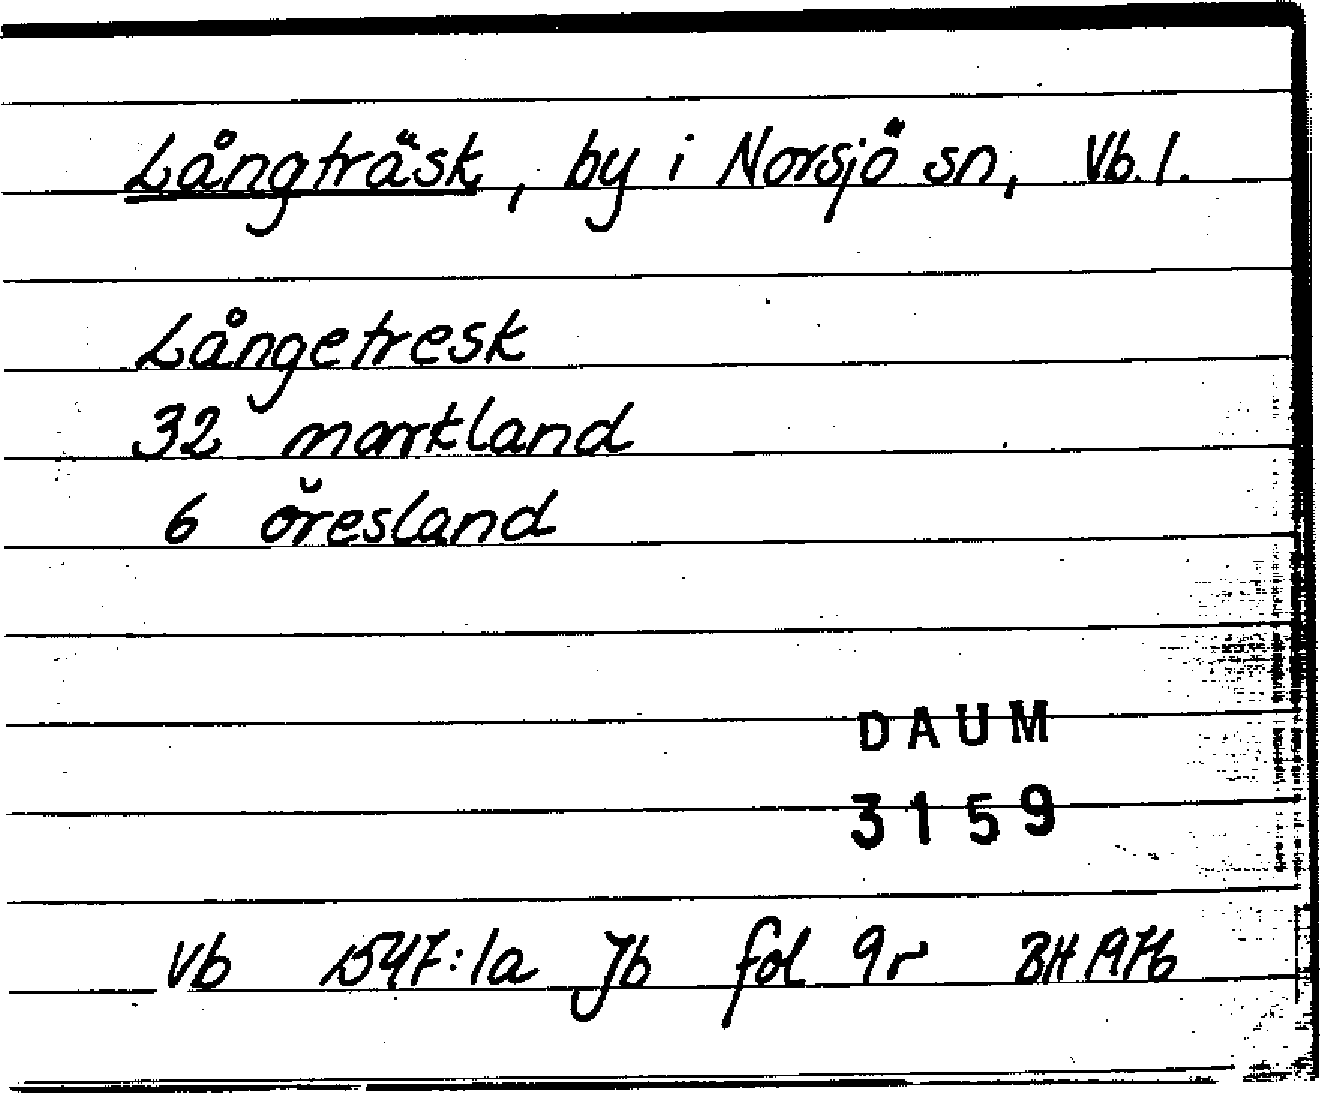 Långträsk, by i Norsjö sn, Vb. l.
Långetresk
32 markland
6 öresland
DAUM
3159
Vb 1547:1a Jb fol 9r BH 1976